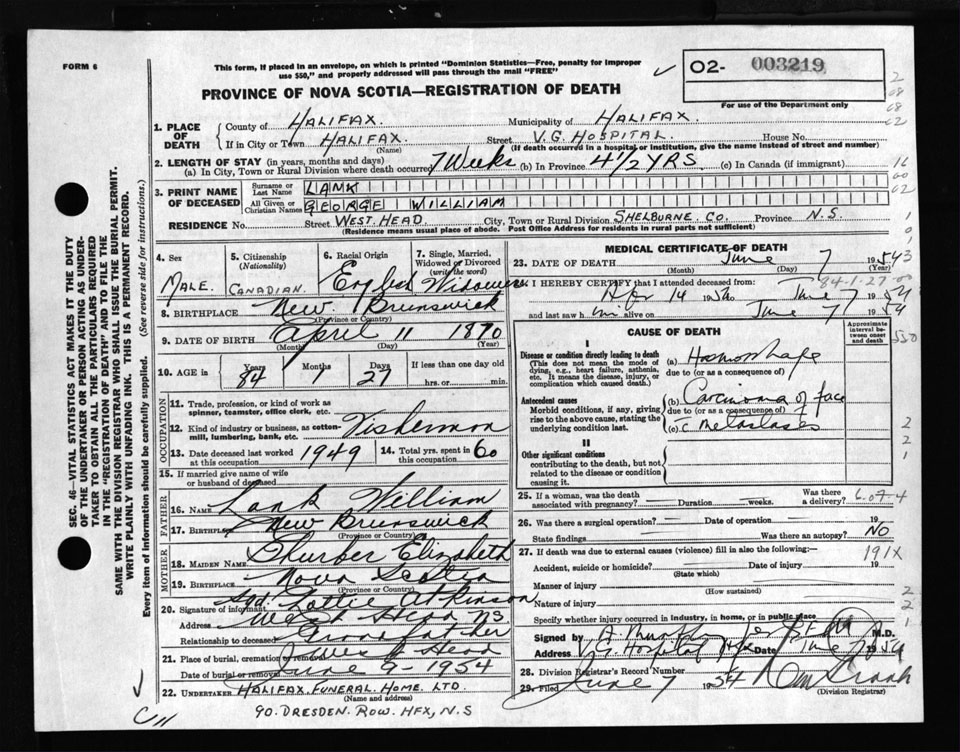 FORM 6
This form, if placed in an envelope, on which is printed "Dominion Statistics—Free, penalty for improper
use $50," and properly addressed will pass through the mail "FREE"
✓
O2- 003219
For use of the Department only
PROVINCE OF NOVA SCOTIA—REGISTRATION OF DEATH
1. PLACE OF DEATH
County of HALIFAX. Municipality of HALIFAX.
If in City or Town HALIFAX. Street V.G. HOSPITAL. House No.
(Name) (If death occurred in a hospital or institution, give the name instead of street and number)
2. LENGTH OF STAY (in years, months and days)
(a) In City, Town or Rural Division where death occurred 7 Weeks (b) In Province 4 1/2 YRS. (c) In Canada (if immigrant)
3. PRINT NAME OF DECEASED
Surname or Last Name LANK
All Given or Christian Names GEORGE WILLIAM
RESIDENCE No. Street WEST. HEAD. City, Town or Rural Division SHELBURNE. CO. Province N.S.
(Residence means usual place of abode. Post Office Address for residents in rural parts not sufficient)
4. Sex MALE.
5. Citizenship (Nationality) CANADIAN.
6. Racial Origin English
7. Single, Married, Widowed or Divorced (write the word) Widower
8. BIRTHPLACE New Brunswick
(Province or Country)
9. DATE OF BIRTH April 11 1870
(Month) (Day) (Year)
10. AGE in Years 84 Months 1 Days 27 If less than one day old hrs. or min.
OCCUPATION
11. Trade, profession, or kind of work as spinner, teamster, office clerk, etc.
12. Kind of industry or business, as cotton-mill, lumbering, bank, etc. Fisherman
13. Date deceased last worked at this occupation 1949 14. Total yrs. spent in this occupation 60
15. If married give name of wife or husband of deceased
FATHER
16. NAME Lank William
17. BIRTHPLACE New Brunswick
(Province or Country)
MOTHER
18. MAIDEN NAME Thurber Elizabeth
19. BIRTHPLACE Nova Scotia
(Province or Country)
20. Signature of informant Sgd. Lottie Atkinson
Address West Head NS
Relationship to deceased Grandfather
21. Place of burial, cremation or removal West Head
Date of burial or removal June 9 - 1954
22. UNDERTAKER HALIFAX. FUNERAL. HOME. LTD.
(Name and address)
90. DRESDEN. ROW. HFX, N.S
MEDICAL CERTIFICATE OF DEATH
23. DATE OF DEATH June 7 1954
(Month) (Day) (Year)
84-1-27
I HEREBY CERTIFY that I attended deceased from:
Apr 14 1954 to June 7 1954
and last saw him alive on June 7 1954
CAUSE OF DEATH
Approximate interval between onset and death
I
Disease or condition directly leading to death (a) Haemorrhage
(This does not mean the mode of dying, e.g., heart failure, asthenia, etc. It means the disease, injury, or complication which caused death.)
due to (or as a consequence of)
Antecedent causes (b) Carcinoma of face
Morbid conditions, if any, giving rise to the above cause, stating the underlying condition last.
due to (or as a consequence of)
(c) c metastases
II
Other significant conditions
contributing to the death, but not related to the disease or condition causing it.
25. If a woman, was the death associated with pregnancy? Duration weeks. Was there a delivery?
6-07-4
26. Was there a surgical operation? Date of operation 19
State findings Was there an autopsy? NO
27. If death was due to external causes (violence) fill in also the following:
191X
Accident, suicide or homicide? Date of injury 19
(State which)
Manner of injury
(How sustained)
Nature of injury
Specify whether injury occurred in industry, in home, or in public place
Signed by M.D.
Address V.G. Hospital Hfx Date June 7 1954
28. Division Registrar's Record Number
29. Filed June 7 1954
(Division Registrar)
SEC. 46—VITAL STATISTICS ACT MAKES IT THE DUTY
OF THE UNDERTAKER OR PERSON ACTING AS UNDER-
TAKER TO OBTAIN ALL THE PARTICULARS REQUIRED
IN THE "REGISTRATION OF DEATH" AND TO FILE THE
SAME WITH THE DIVISION REGISTRAR WHO SHALL ISSUE THE BURIAL PERMIT.
WRITE PLAINLY WITH UNFADING INK. THIS IS A PERMANENT RECORD.
Every item of information should be carefully supplied. (See reverse side for instructions.)